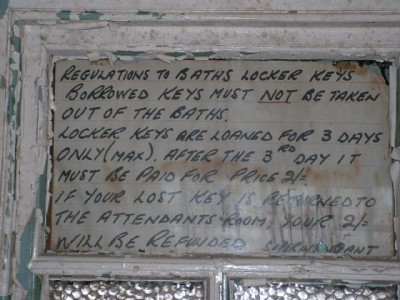 REGULATIONS TO BATHS LOCKER KEYS
BORROWED KEYS MUST NOT BE TAKEN
OUT OF THE BATHS.
LOCKER KEYS ARE LOANED FOR 3 DAYS
ONLY (MAX). AFTER THE 3RD DAY IT
MUST BE PAID FOR PRICE 2/=
IF YOUR LOST KEY IS RETURNED TO
THE ATTENDANTS ROOM, YOUR 2/=
WILL BE REFUNDED